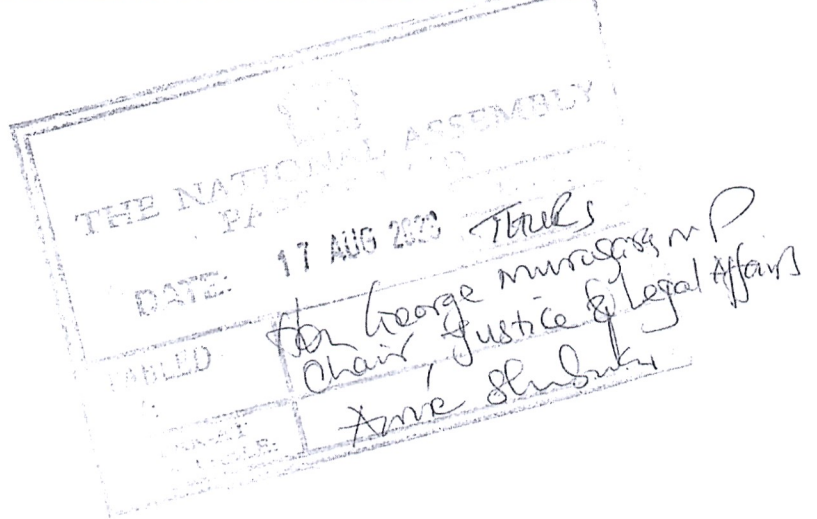 THE NATIONAL ASSEMBLY
DATE: 17 AUG 2023 THURS
TABLED
Hon George Murugara MP
Chair, Justice & Legal Affairs